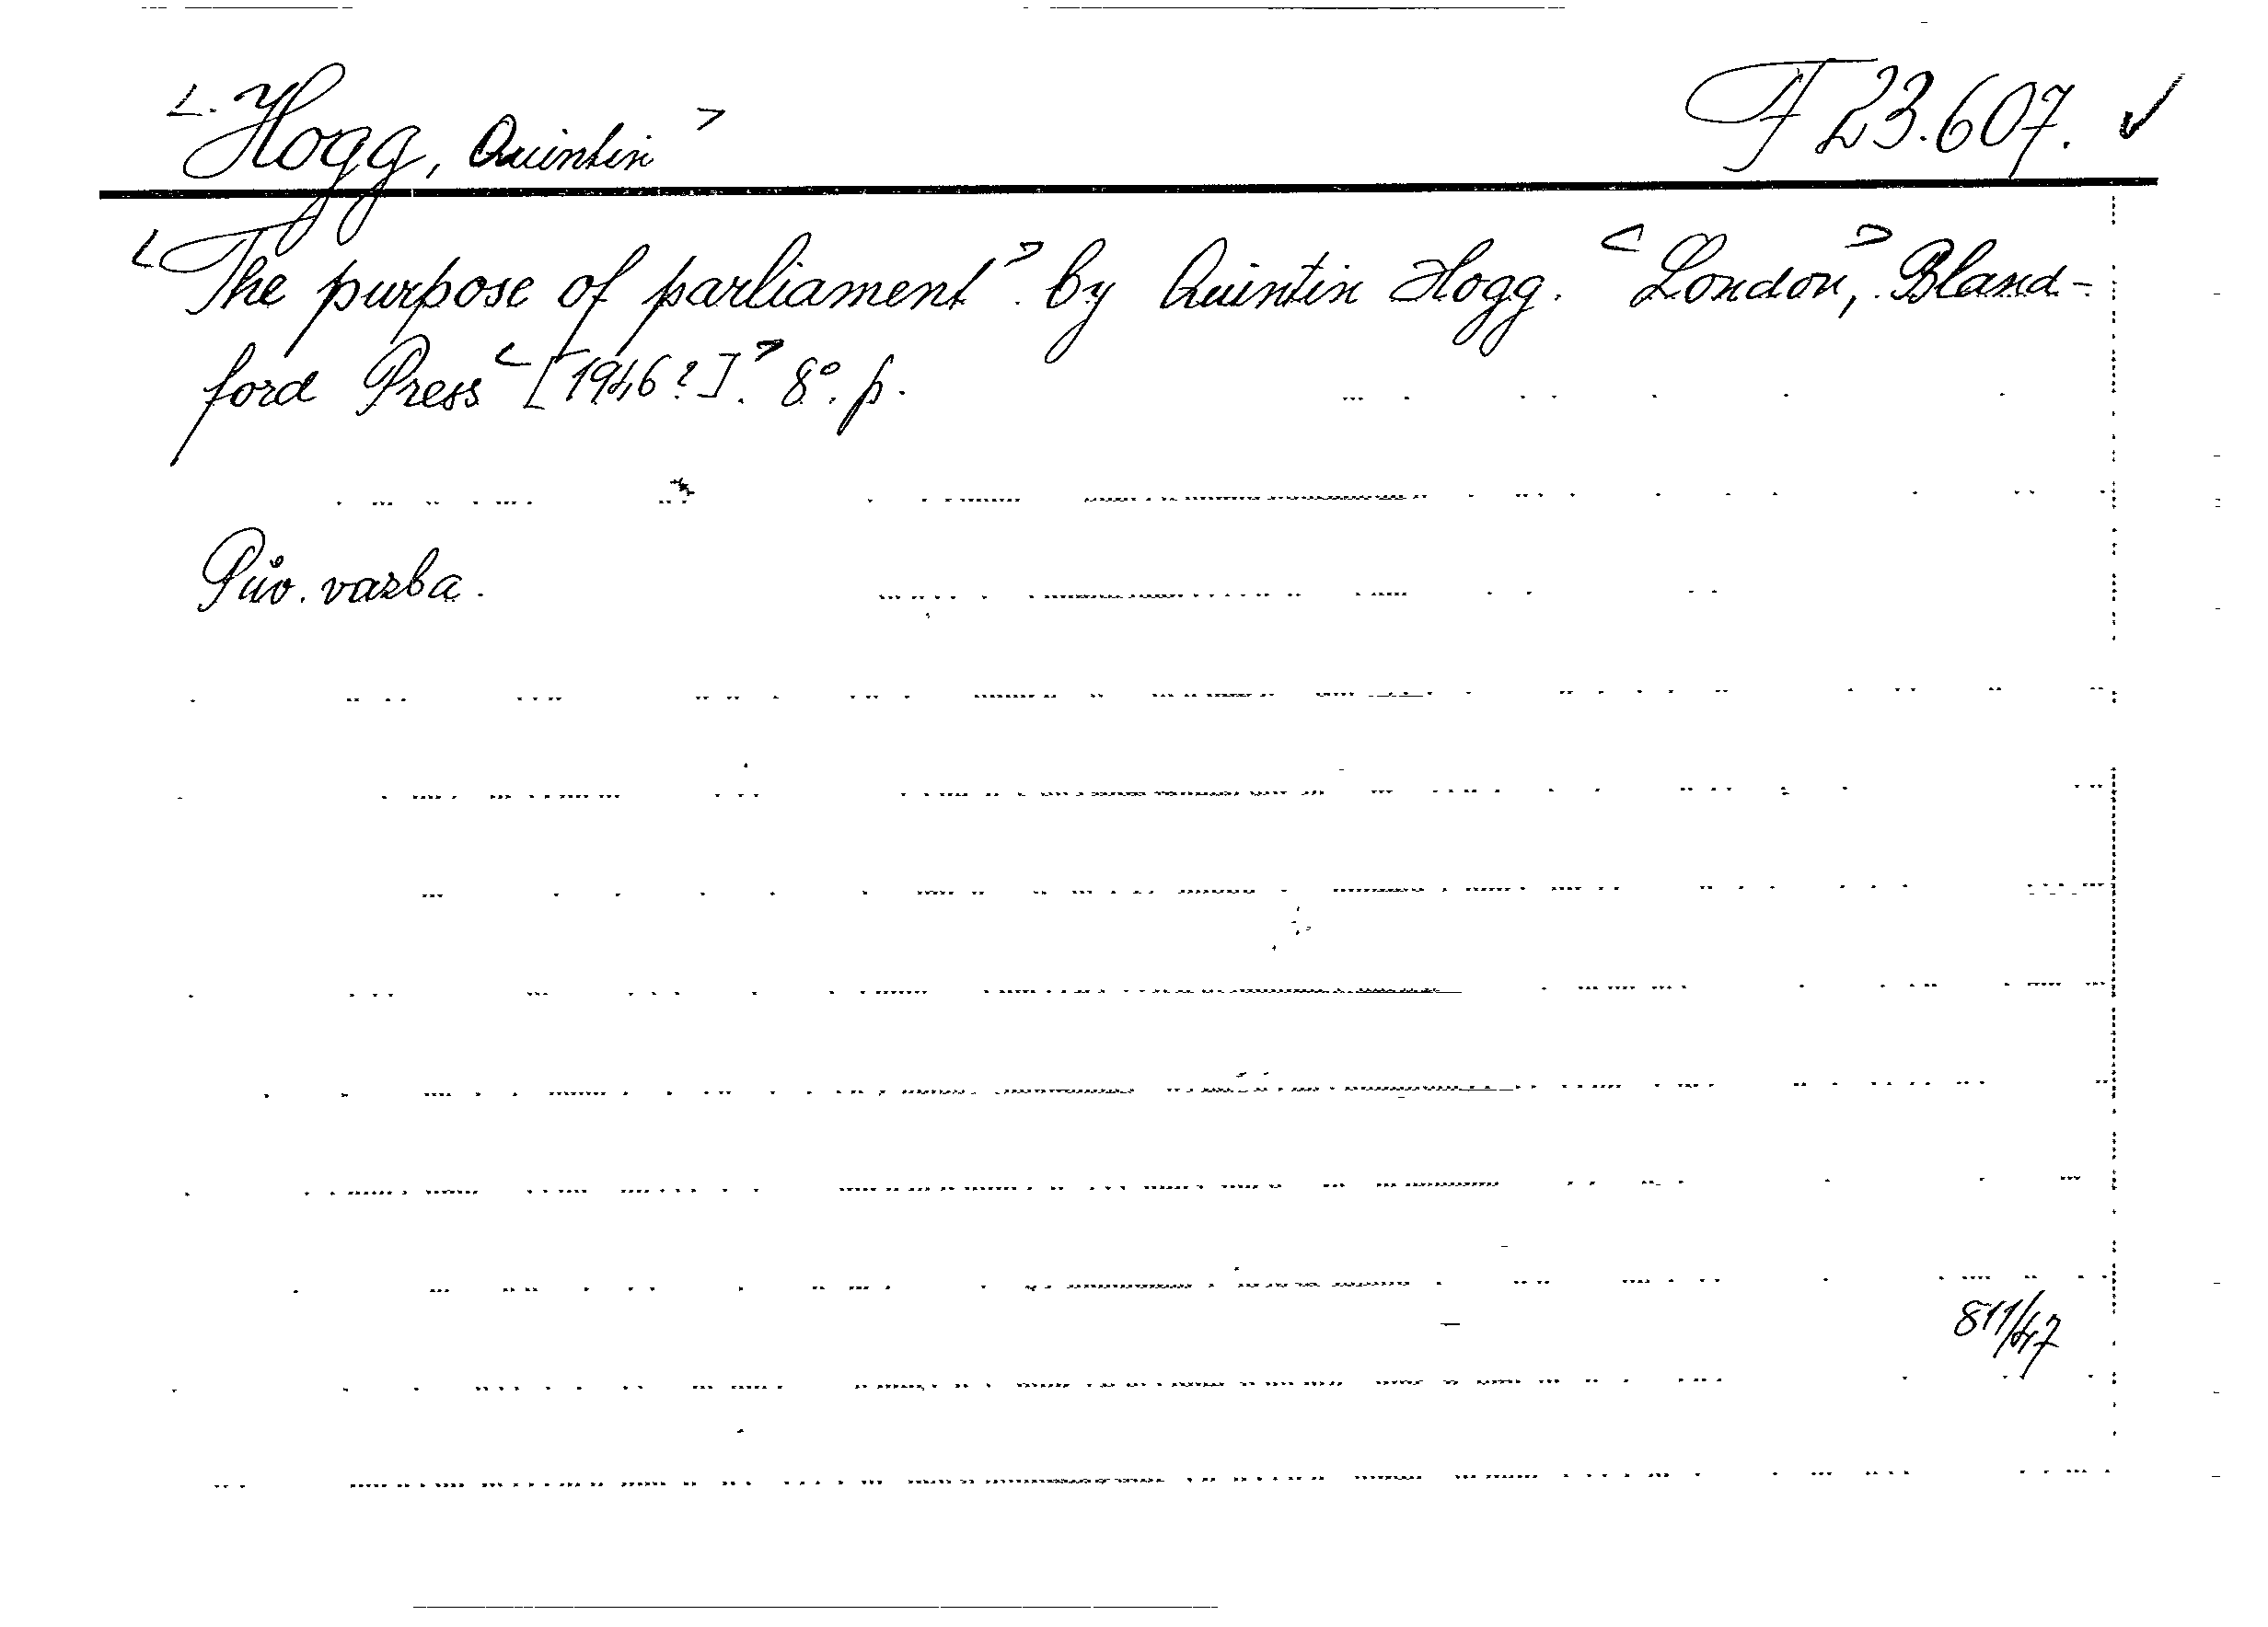 <Hogg, Quintin> F 23.607. ✓
<The purpose of parliament>. by Quintin Hogg. <London,> Bland-
ford Press <[1946?].> 8°. p.
Pův. vazba.
811/47